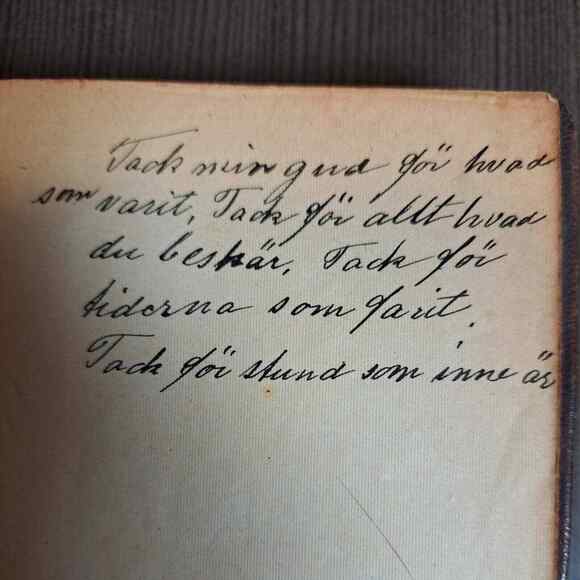 Tack min gud för hvad
som varit, Tack för allt hvad
du beskär, Tack för
tiderna som farit.
Tack för stund som inne är